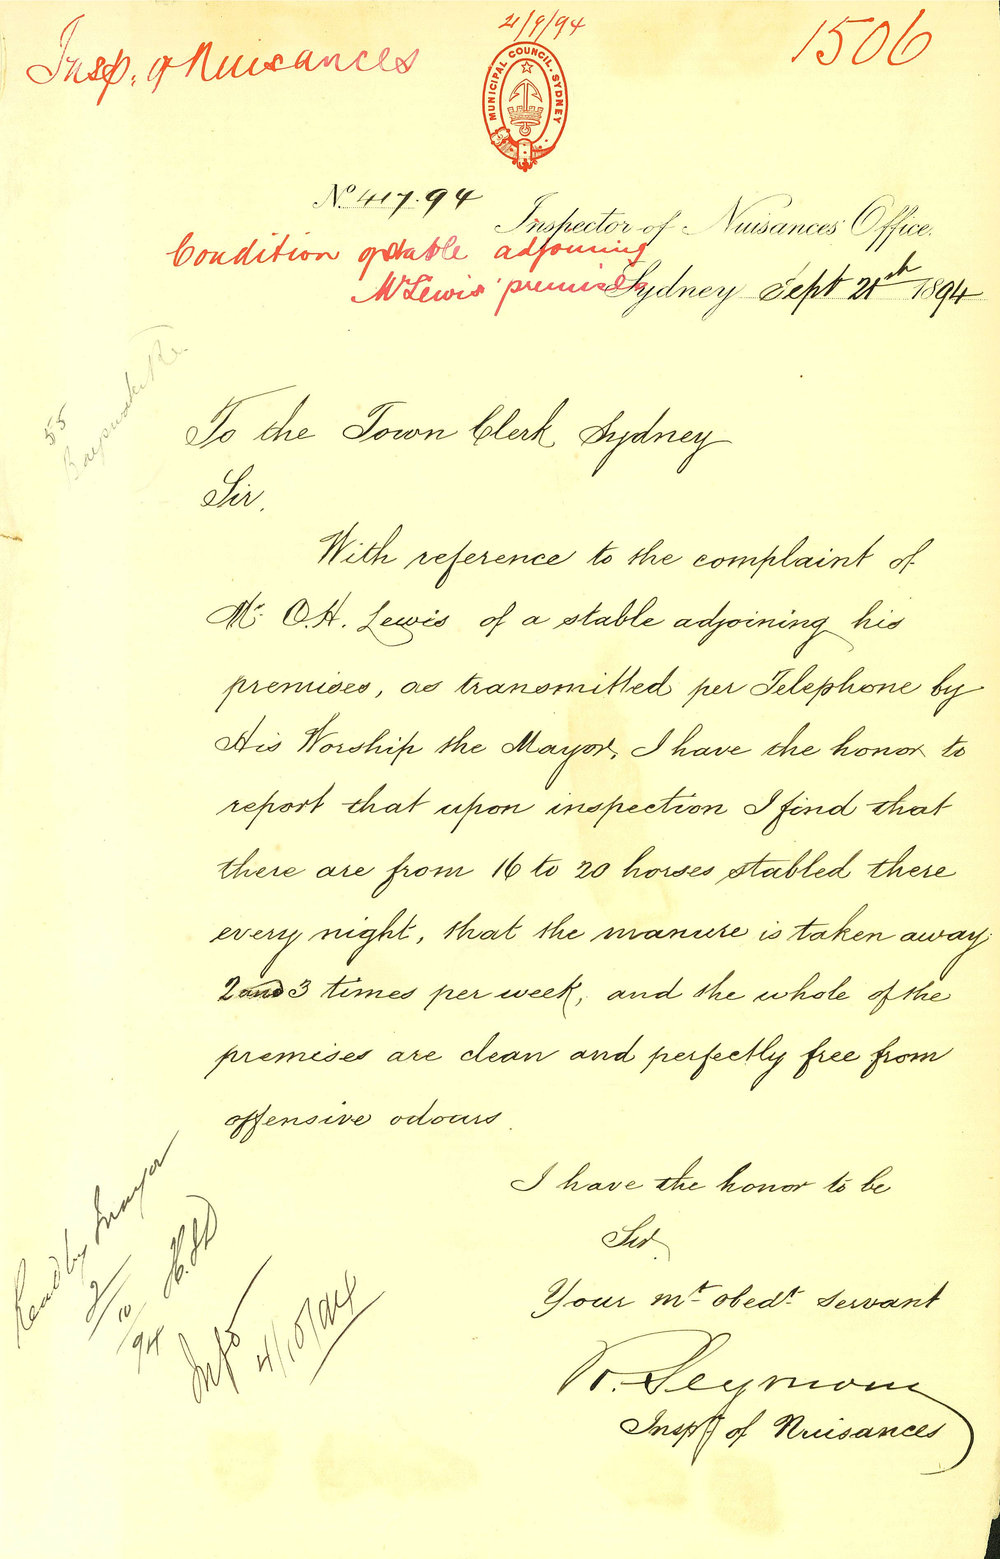 21/9/94
Insp. of Nuisances
1506
MUNICIPAL COUNCIL. SYDNEY
No. 417.94
Inspector of Nuisances Office.
Condition of stable adjoining
Mr Lewis' premises
Sydney Sept 21st 1894
55
To the Town Clerk Sydney
Sir,
With reference to the complaint of
Mr. O.H. Lewis of a stable adjoining his
premises, as transmitted per Telephone by
His Worship the Mayor, I have the honor to
report that upon inspection I find that
there are from 16 to 20 horses stabled there
every night, that the manure is taken away
2 and 3 times per week, and the whole of the
premises are clean and perfectly free from
offensive odours.
I have the honor to be
Sir
Your mt. obedt. servant
R. Seymour
Inspr of Nuisances
Read by Mayor
2/10/94
Info
4/10/94